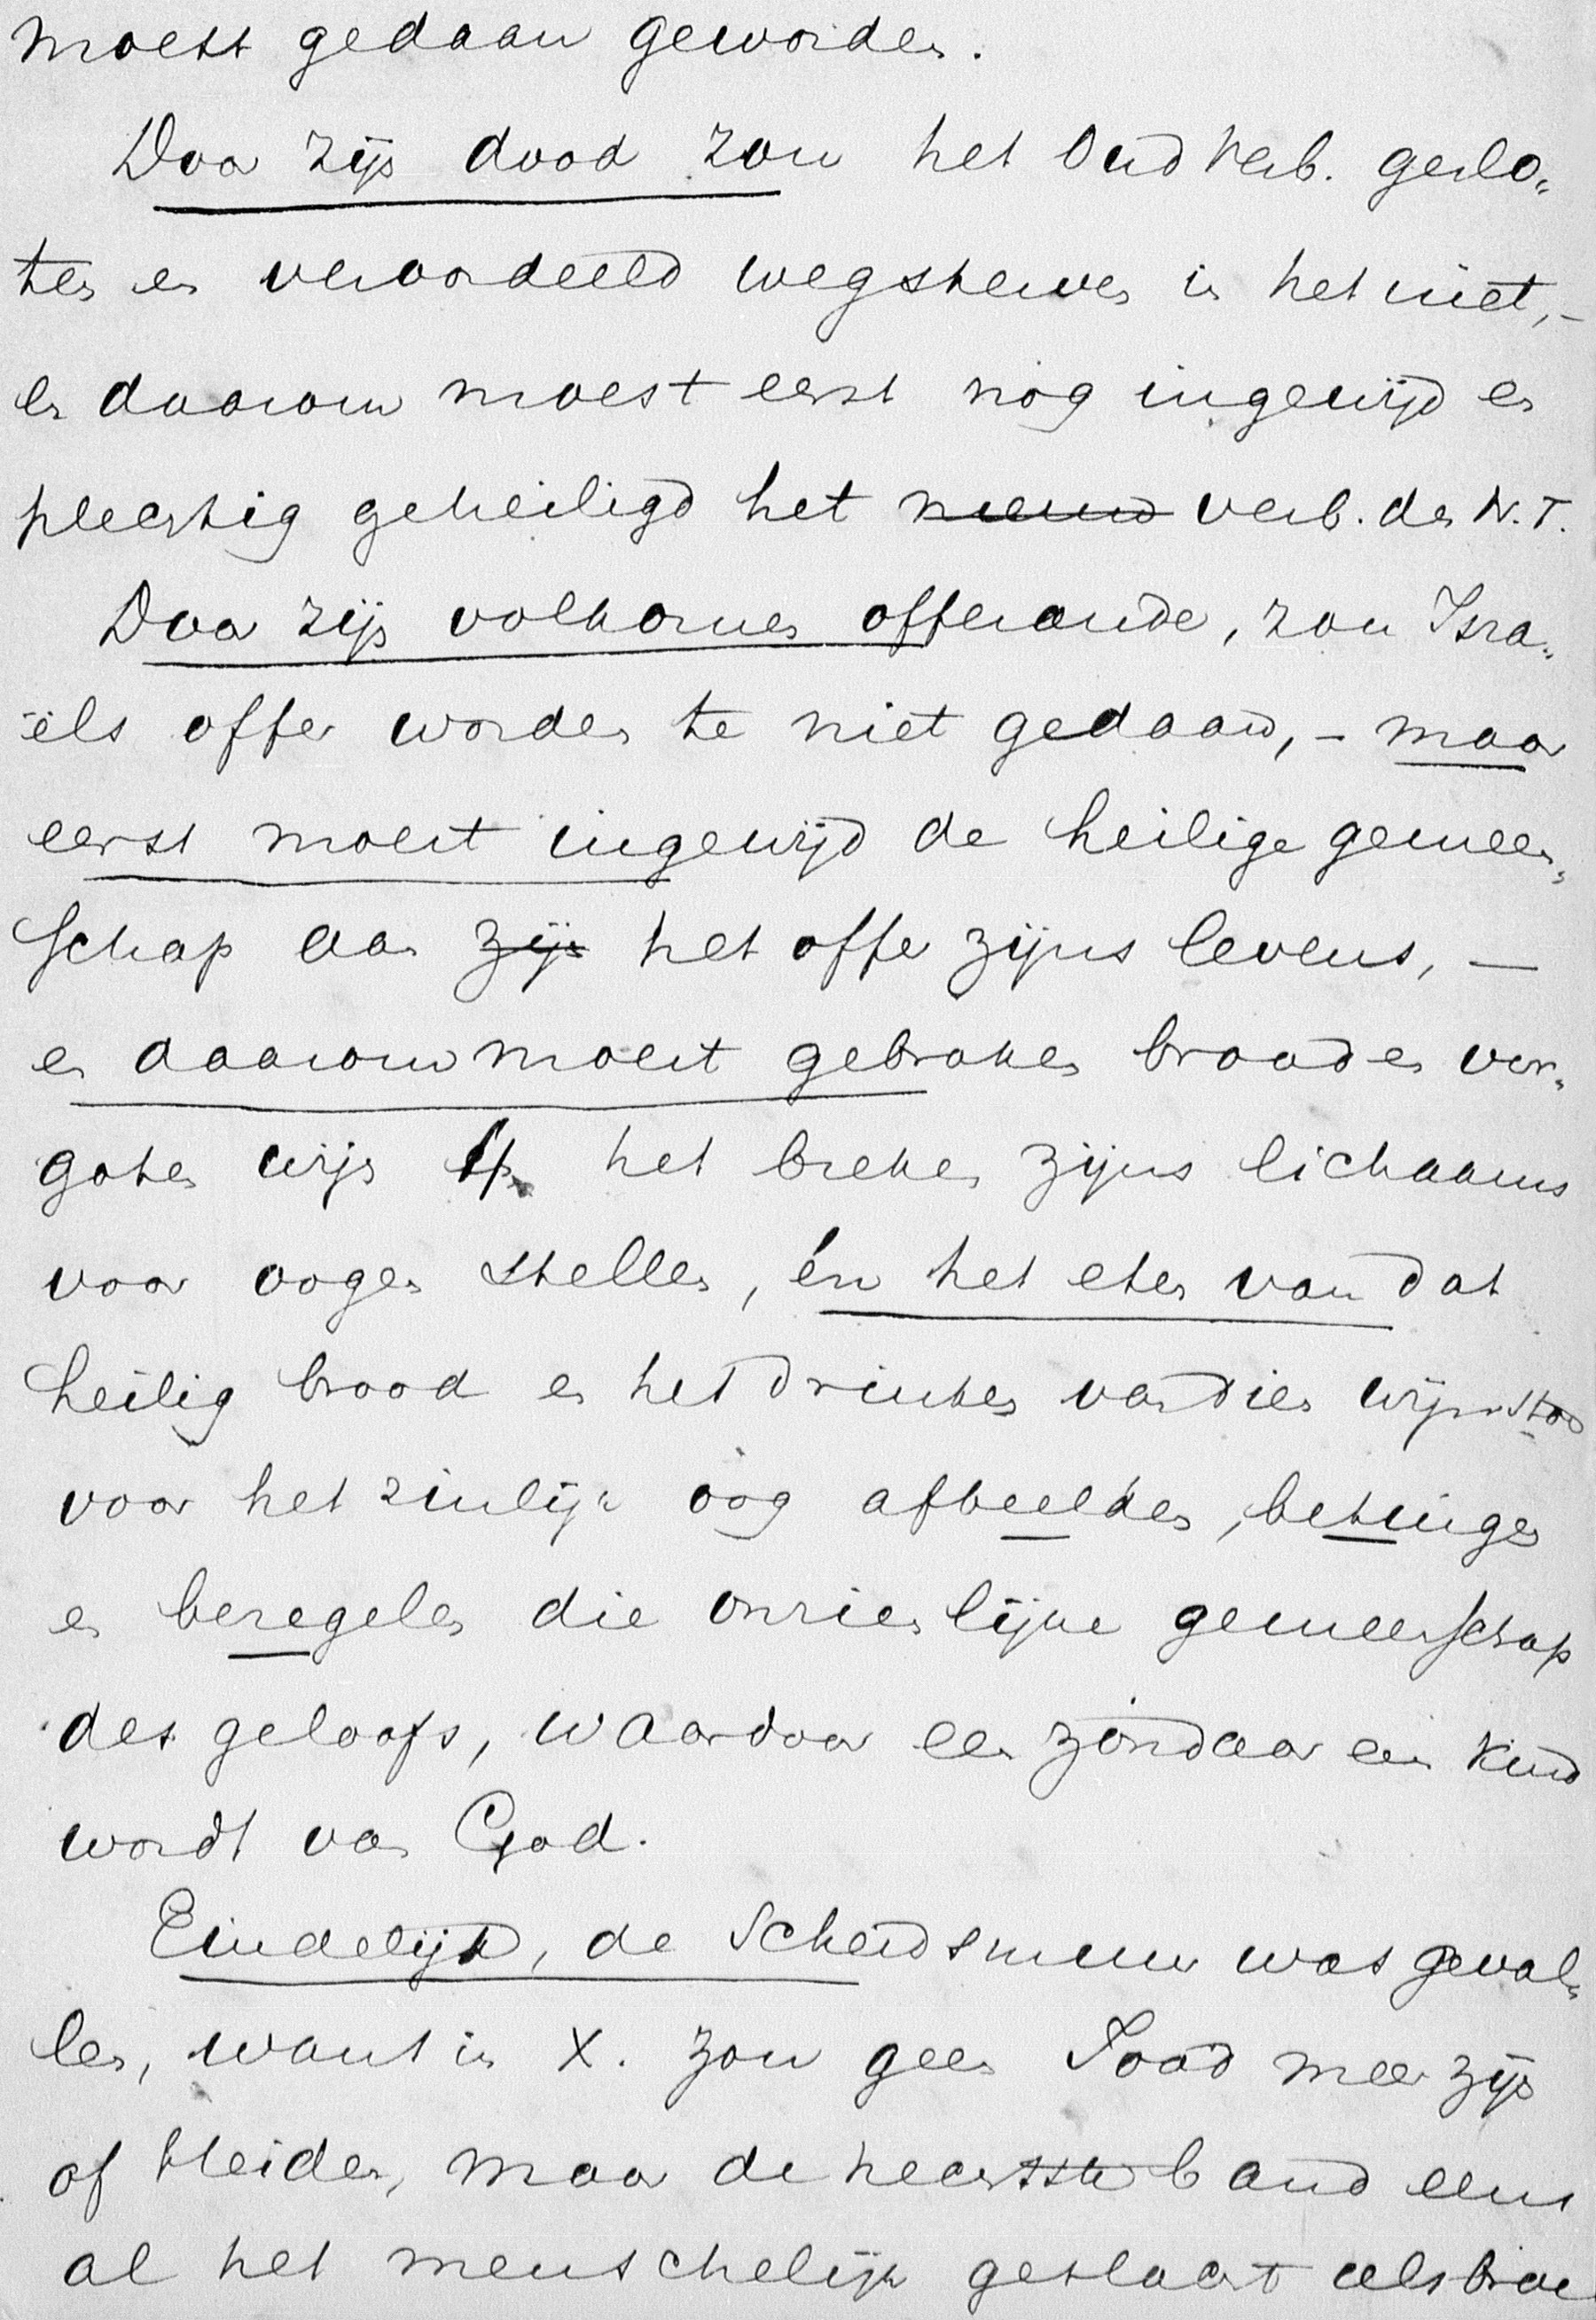 moest gedaan geworden.
Door zijn dood zou het Oud Verb. geslo„
ten en veroordeeld wegsterven in het niet, –
en daarom moest eerst nog ingewijd en
plechtig geheiligd het nieuw verb. des N.T.
Door zijn volkomen offerande, zou Isra„
ëls offer worden te niet gedaan, – maar
eerst moest ingewijd de heilige gemeen„
schap aan zijn het offer zijns levens, –
en daarom moest gebroken brood en ver„
goten wijn het breken zijns lichaams
voor oogen stellen, én het eten van dat
heilig brood en het drinken van dien wijn
voor het zinlijk oog afbeelden, betuigen
en bezegelen die onzienlijke gemeenschap
des geloofs, waardoor een zondaar een kind
wordt van God.
Eindelijk, de Scheidsmuur was geval„
len, want in X. zou geen Jood meer zijn
of Heiden, maar de hechtste band eens
al het menschelijk geslacht als broe